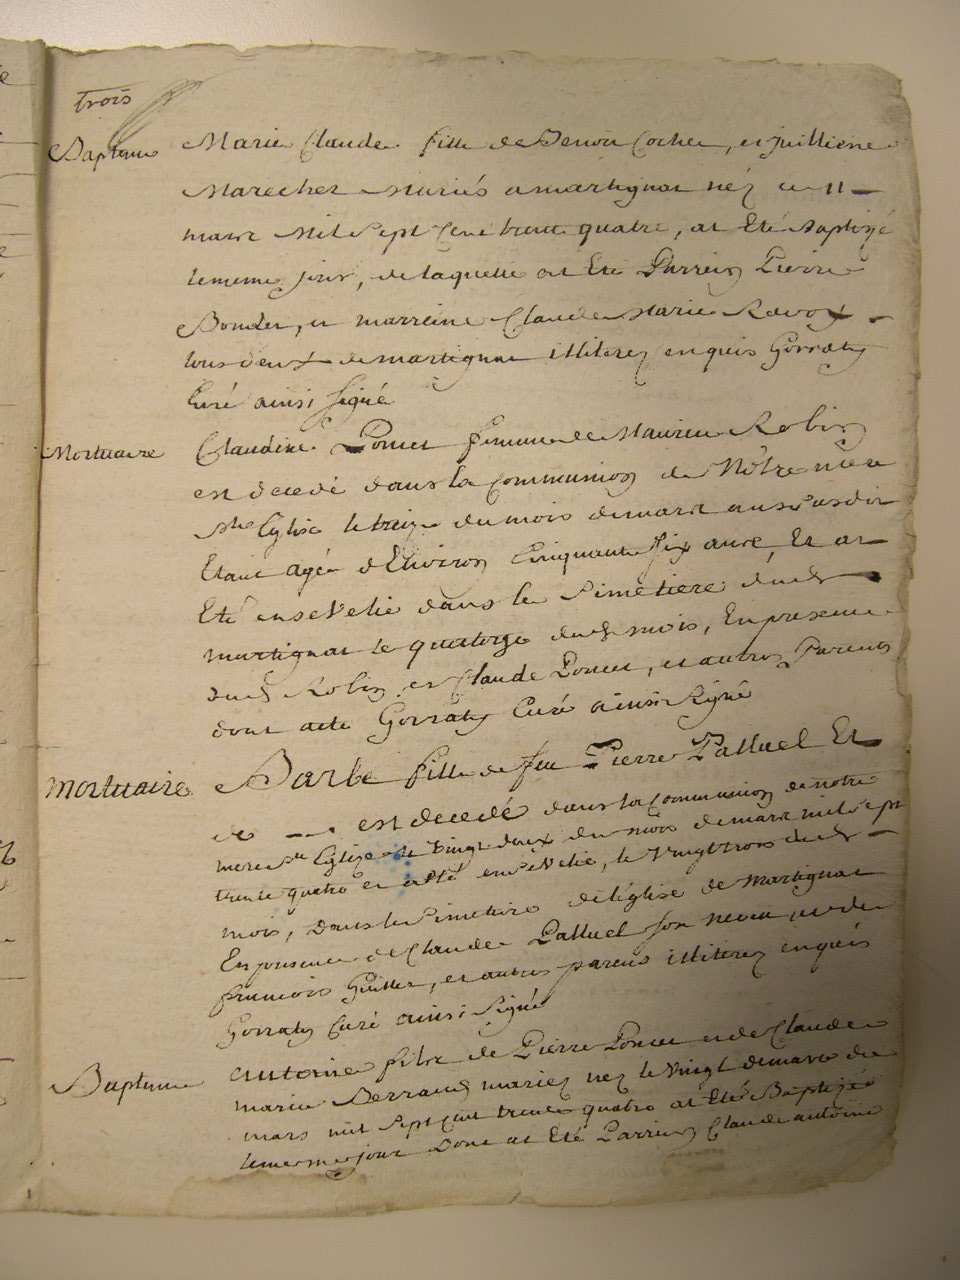 trois
Bapteme Marie Claude fille de Benoit Cochet, et juillienne
Marechet Mariés a martignat néz ce 11
mars Mil Sept Cent trente quatre, at Eté Baptizé
lememe jour, de laquelle at Eté Parrein Pierre
Bondet, et marreine Claude Marie Ravox
tous deux de martignat illiterez enquis Gorraty
Curé ainsi signé
Mortuaire Claudine Poncet femme de Maurice Robin
est decedé dans la Communion de Nôtre mere
ste Eglise le treize du mois de mars an
Etant agée d'Environ Cinquante six ans, Et at
Eté ensevelie dans le Simetiere dud
martignat le quatorze dud mois, En presence
dud Robin et Claude Poncet, et autres Parents
dont acte Gorraty Curé ainsi Signé
Mortuaire Barbe fille de feu Pierre Palluel Et
de est decedé dans la Communion de notre
mere ste Eglise le vingt deux du mois de mars mil sept
trente quatre et at Eté ensevelie, le vingt trois dud
mois, dans le Simetiere de l'église de Martignat
En presence de Claude Palluel son neveu et de
francois Guillet, et autres parens illiterez enquis
Gorraty Curé ainsi Signé
Bapteme Antoine fils de Pierre Poncet et de Claude
marie Berraud mariez nez le vingt de mars du
mars mil Sept Cent trente quatre at Eté Baptizé
lememe jour Dont at Eté Parrein Claude antoine